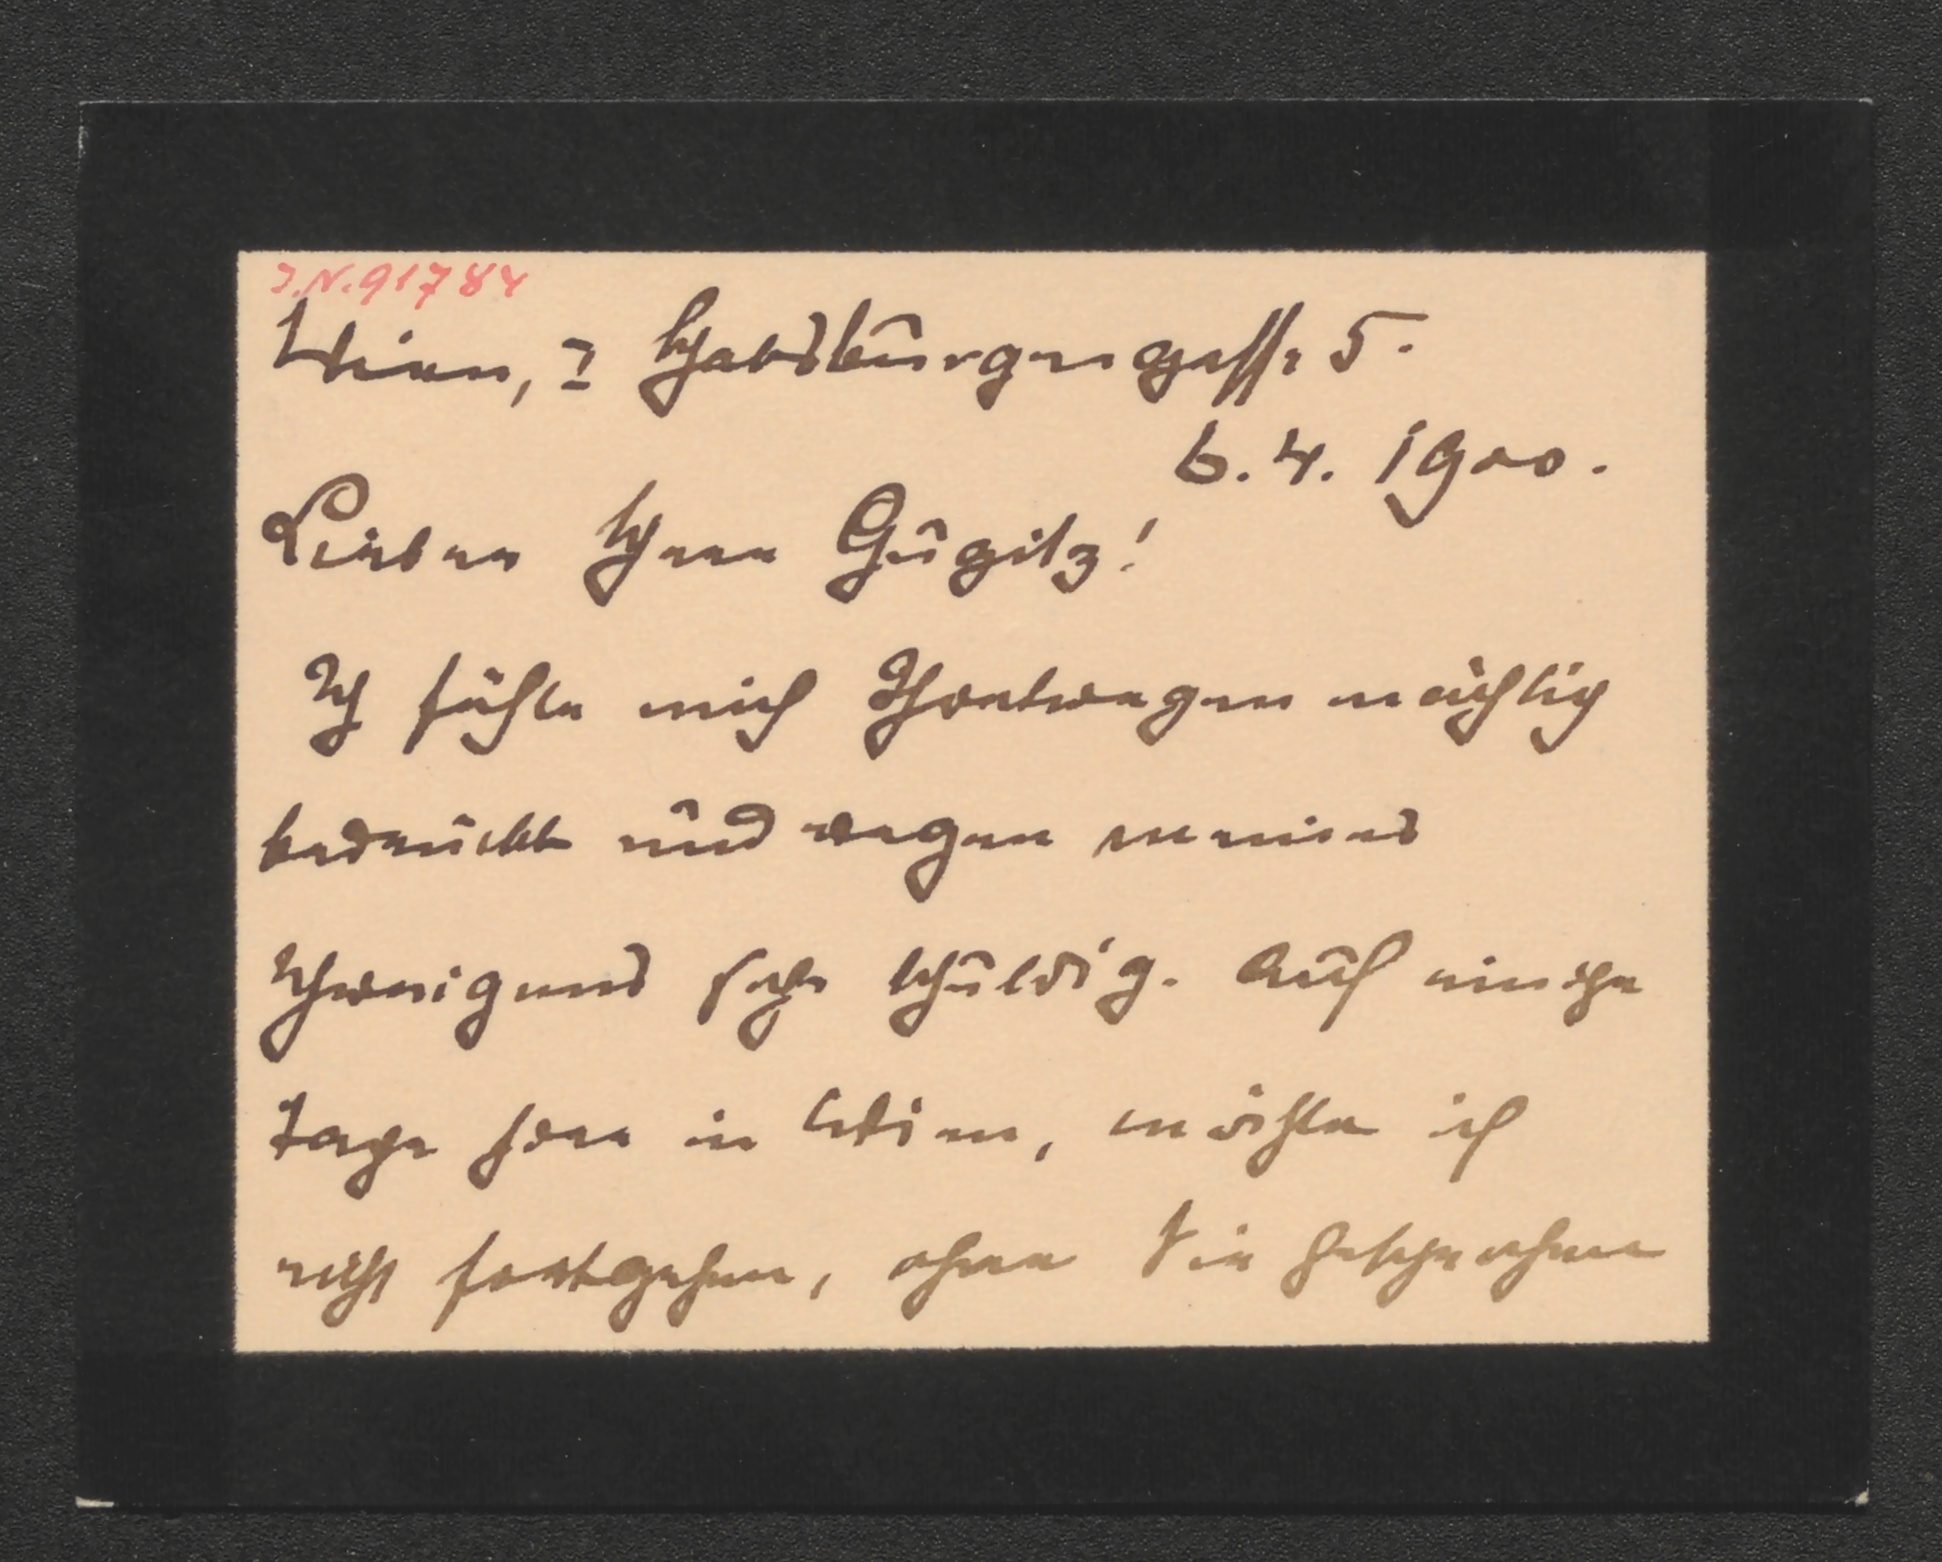 J.N. 91784
Wien, I Habsburgergasse 5.
6. 4. 1900.
Lieber Herr Gugitz!
Ich fühle mich Ihretwegen mächtig
bedrückt und wegen meines
Schweigens sehr schuldig. Auf einige
Tage hier in Wien, möchte ich
nicht fortgehen, ohne Sie gesprochen